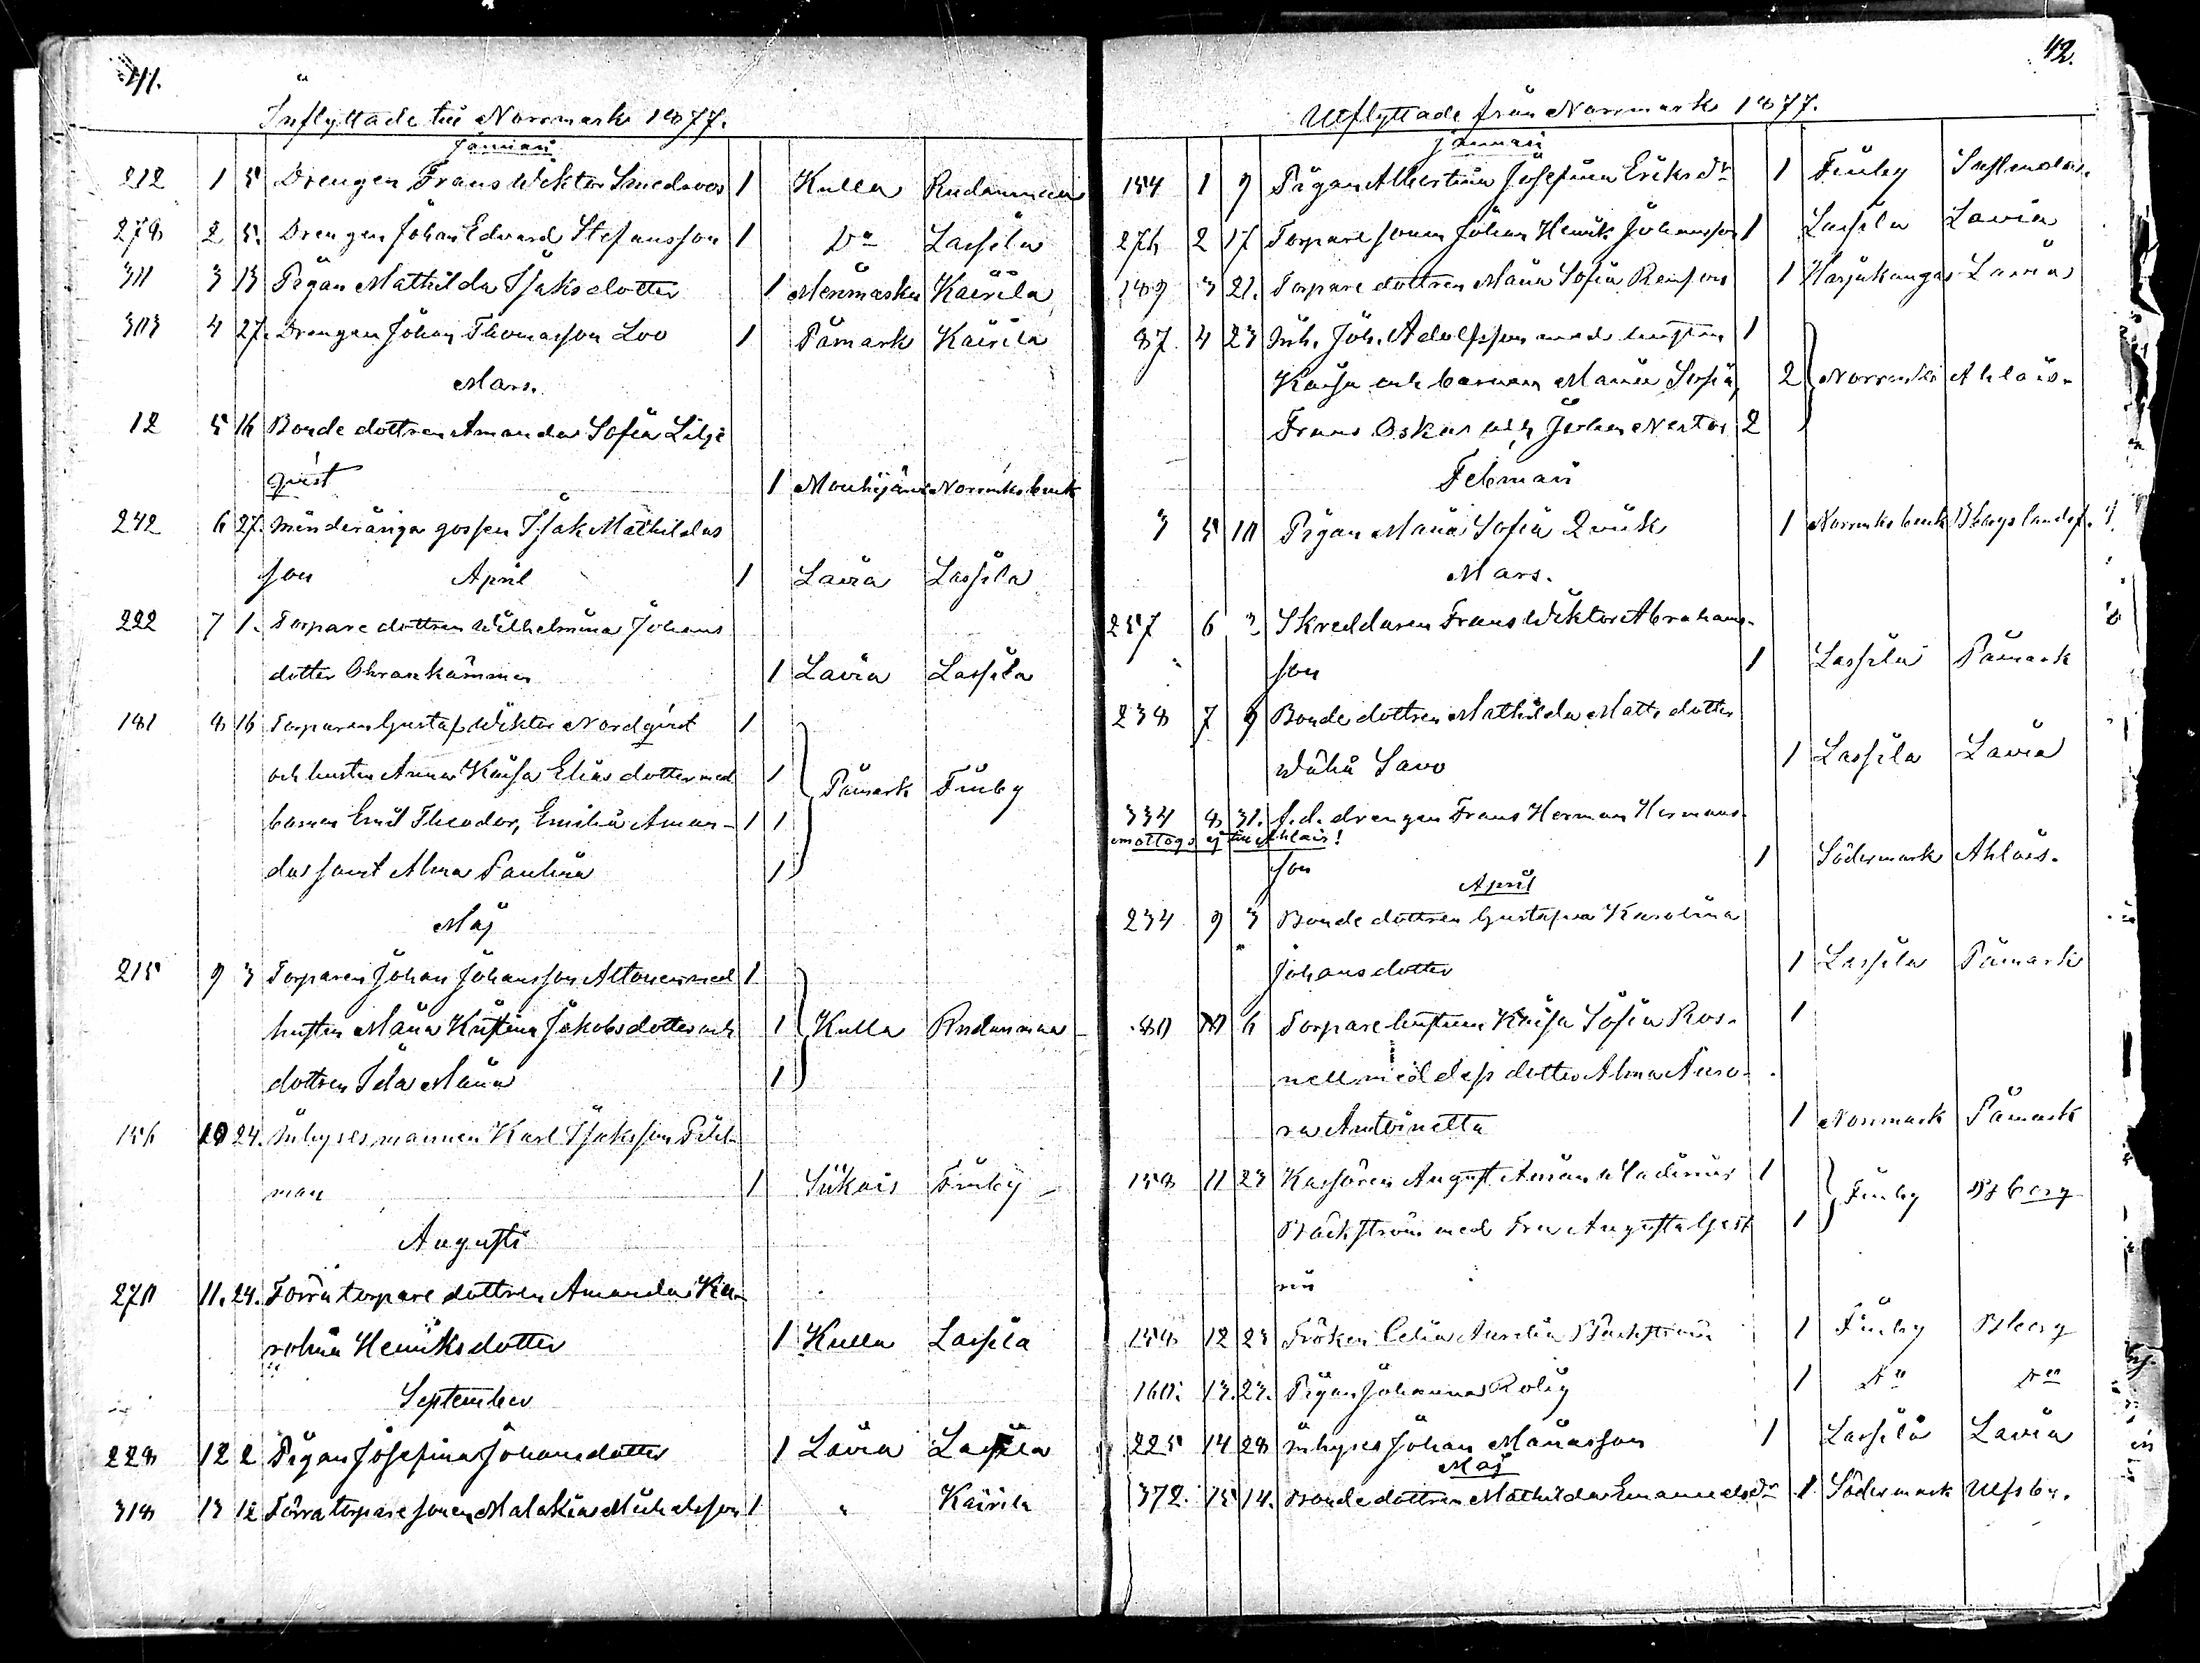 41.
Inflyttade till Norrmark 1877.
Januari
212 1 5 Drengen Frans Wiktor Smedsroos 1 Kulla Rudanmaa
278 2 5. Drengen Johan Edvard Stefansson 1 Do Lassila
311 3 13 Pigan Mathilda Isaksdotter 1 Merimasku Kairila
303 4 27. Drengen Johan Thomasson Loo 1 Påmark Kairila
Mars.
12 5 16 Bonde dottren Amanda Sofia Lilje
qvist 1 Mouhijärvi Norrmks bruk
242 6 27. minderåriga gossen Isak Mathildas
son April 1 Lavia Lassila
222 7 1. Torpare dottren Wilhelmina Johans
dotter 1 Lavia Lassila
181 8 16 Torparen Gustaf Wiktor Nordqvist 1
och hustrun Anna Kaisa Elias dotter med 1 Påmark Finby
barnen Emil Theodor, Emilia Aman- 1 1
da samt Alma Paulina 1
Maj
215 9 3 Torparen Johan Johansson Altonen med 1
hustrun Maria Kristina Jakobsdotter och 1 Kulla Rudanmaa
dottren Ida Maria 1
156 10 24. Inhyses mannen Karl Isaksson Pihl-
man 1 Siikais Finby
Augusti
270 11. 24. Förra torpare dottren Amanda Ka-
rolina Henriksdotter 1 Kulla Lassila
September
228 12 2 Pigan Josefina Johansdotter 1 Lavia Lassila
318 13 12 Förra torpare sonen Malakias Michelsson 1 " Kairila
42.
Utflyttade från Norrmark 1877.
Januari
154 1 9 Pigan Albertina Josefina Eriksdr 1 Finby
276 2 17 Torpare sonen Johan Henrik Johansson 1 Lassila Lavia
189 3 21. Torpare dottren Maria Sofia 1 Harjakangas Lavia
87. 4 23 Inh. Joh. Adolfsson med hustrun 1
Kaisa och barnen Maria Sofia, 2 Norrmks Ahlais.
Frans Oskar och Johan Nestor 2
Februari
3 5 10 Pigan Maria Sofia Qvick 1 Norrmks bruk Bbergs landsf.
Mars.
257 6 2 Skreddaren Frans Wiktor Abrahams-
son 1 Lassila Påmark
238 7 9 Bonde dottren Mathilda Matts dotter
Wähä Savo 1 Lassila Lavia
334 8 31. f.d. drengen Frans Herman Hermans-
emottogs ej till Ahlais!
son 1 Södermark Ahlais.
April
234 9 3 Bonde dottren Gustafva Karolina
Johansdotter 1 Lassila Påmark
80 10 6 Torpare hustrun Kaisa Sofia Ros- 1
nell med dess dotter Alma Auro-
ra Antoinetta 1 Norrmark Påmark
158 11 23 Kassören August Wladimir 1
Bäckström med Fru Augusta 1 Finby Bjberg
158 12 23 Fröken Celia Aurelia Bäckström 1 Finby Bberg
160. 13. 23. Pigan Johanna Rolig 1 Do Do
225 14 28 inhyses Johan Manasson 1 Lassila Lavia
Maj
372. 15 14. Bonde dottren Mathilda Emanuelsdr 1 Södermark Ulfsby.